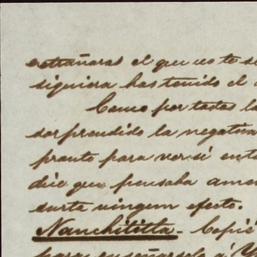 estrañaras el que no te
siquiera has tenido el
Como por todas la
sorprendido la negativa
pronto para ver si
dice que pensaba
surta ningun efecto.
Nanchititla - Copi
para enseñarselo á